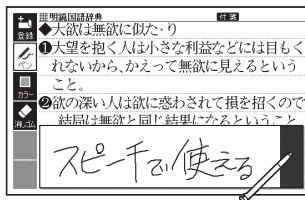 登録
明鏡国語辞典
付箋
◆大欲は無欲に似た・り
ペン
❶大望を抱く人は小さな利益などには目もく
れないから、かえって無欲に見えるという
こと。
カラー
❷欲の深い人は欲に惑わされて損を招くので
結局は無欲と同じ結果になるということ
消しゴム
スピーチで使える